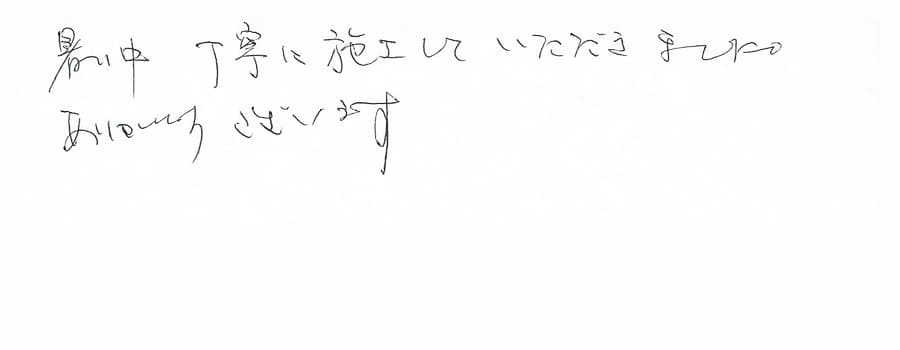 暑い中 丁寧に施工して いただき ました。
ありがとう ございます